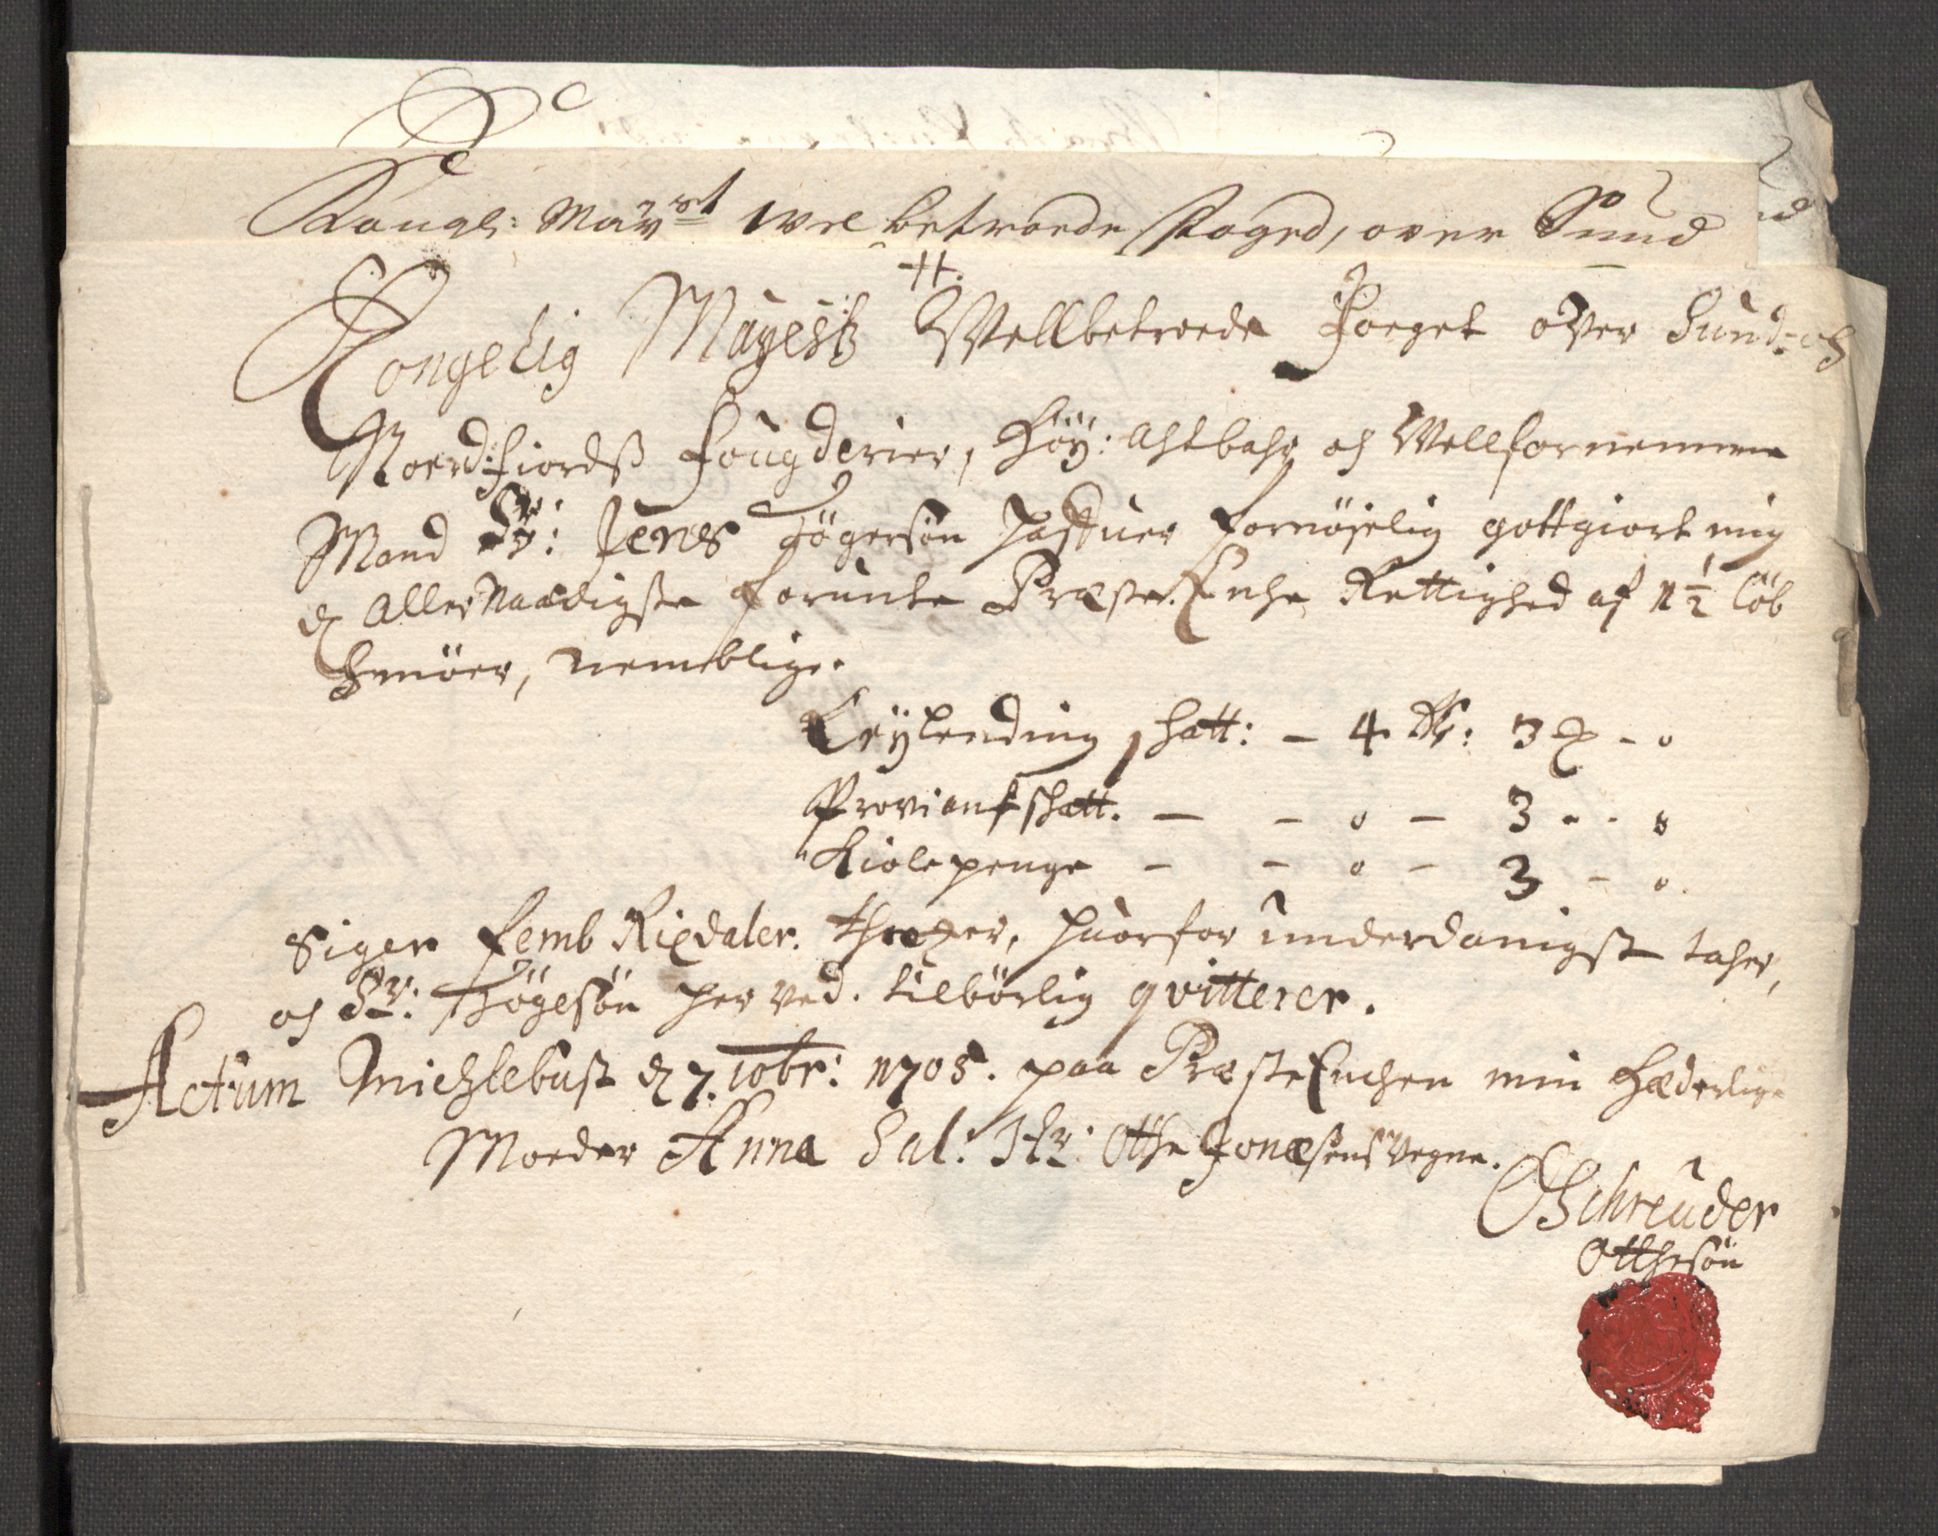 Kongl: May<sup>st</sup> wel betroede foged, over Sund
H.
Kongelig Mayestz Wellbetroede Foeget over Sund=och
Noerd:fiordß Fougderier, Høy: Achtbahr och Wellfornemme
Mand Sr: Jenes Tögersön hafuer fornøjelig gottgiort mig
d allernaadigste forunte Præste Enche Rettighed af 1½ löb
Smöer, nemblig.
Leylending schatt: – 4 Rdr: 3 – 0
Proviantschatt. – – 0 – 3 – – 0
Kiolepenge – – 0 – 3 – 0.
Siger femb Rixdaler. huorfor underdanigst taher,
och Sr: Thögesön her ved. tilbörlig qvitterer.
Actum Michlebust d 7. 10br: 1705. paa PræsteEnchen min hæderlige
Moeder Anna Sal: Hr: Otthe Jonæsens Vegne.
Schreuder
Otthesön